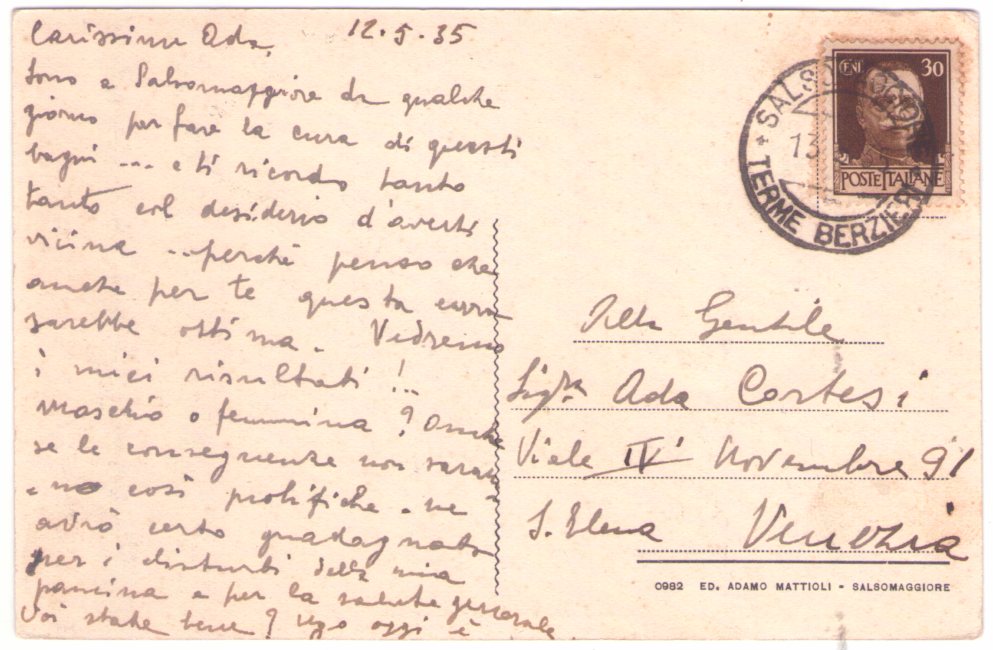 Carissima Ada, 12.5.35
Sono a Salsomaggiore da qualche
giorno per fare la cura di questi
bagni ... e ti ricordo tanto
tanto col desiderio d'averti
vicina ... perchè penso che
anche per te questa cura
sarebbe ottima. Vedremo
i miei risultati!..
Maschio o femmina? Anche
se le conseguenze non saran
-no così prolifiche - ne
avrò certo guadagnato
per i disturbi della mia
pancina e per la salute generale
Voi state bene? Ugo oggi è
CENT 30
POSTE ITALIANE
SALSOMAGGIORE
13
TERME BERZIERI
Alla Gentile
Sig.ra Ada Cortesi
Viale IV Novembre 91
S. Elena Venezia
0982 ED. ADAMO MATTIOLI - SALSOMAGGIORE